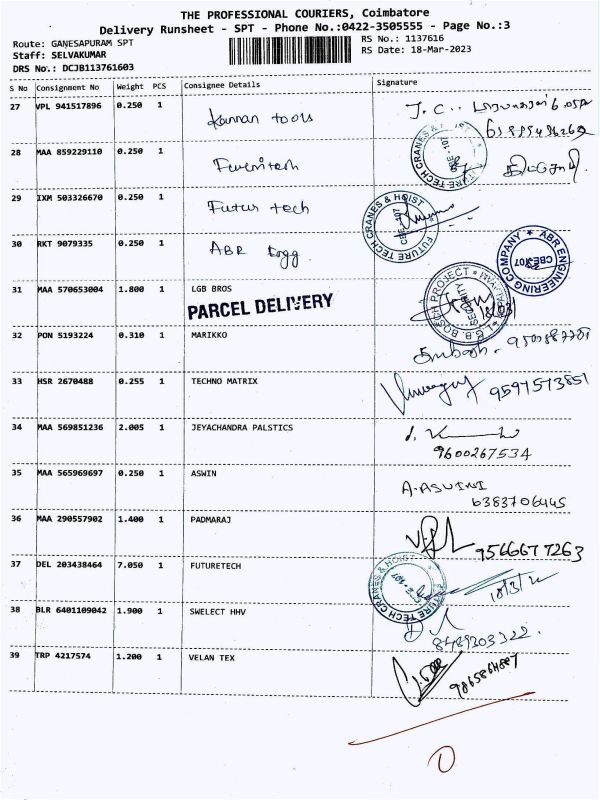 THE PROFESSIONAL COURIERS, Coimbatore
Delivery Runsheet - SPT - Phone No.:0422-3505555 - Page No.:3
Route: GANESAPURAM SPT
RS No.: 1137616
Staff: SELVAKUMAR
RS Date: 18-Mar-2023
DRS No.: DCJB113761603
S No Consignment No Weight PCS Consignee Details Signature
27 VPL 941517896 0.250 1 Kannan tools J.C..
28 MAA 859229110 0.250 1
FUTURE TECH CRANES & HOIST
29 IXM 503326670 0.250 1 Futur tech
FUTURE TECH CRANES & HOIST CBE-107
30 RKT 9079335 0.250 1 ABR Engg.
ABR ENGINEERING COMPANY CBE-107
31 MAA 570653004 1.800 1 LGB BROS
PARCEL DELIVERY
L.G.B. BOSCH PROJECT SECURITY
32 PON 5193224 0.310 1 MARIKKO
33 HSR 2670488 0.255 1 TECHNO MATRIX 9597573851
34 MAA 569851236 2.005 1 JEYACHANDRA PALSTICS
9600267534
35 MAA 565969697 0.250 1 ASWIN A. ASWINI
6383706445
36 MAA 290557902 1.400 1 PADMARAJ
9566677263
37 DEL 203438464 7.050 1 FUTURETECH
FUTURE TECH CRANES & HOIST
38 BLR 6401109042 1.900 1 SWELECT HHV
8489303322.
39 TRP 4217574 1.200 1 VELAN TEX
9865864887